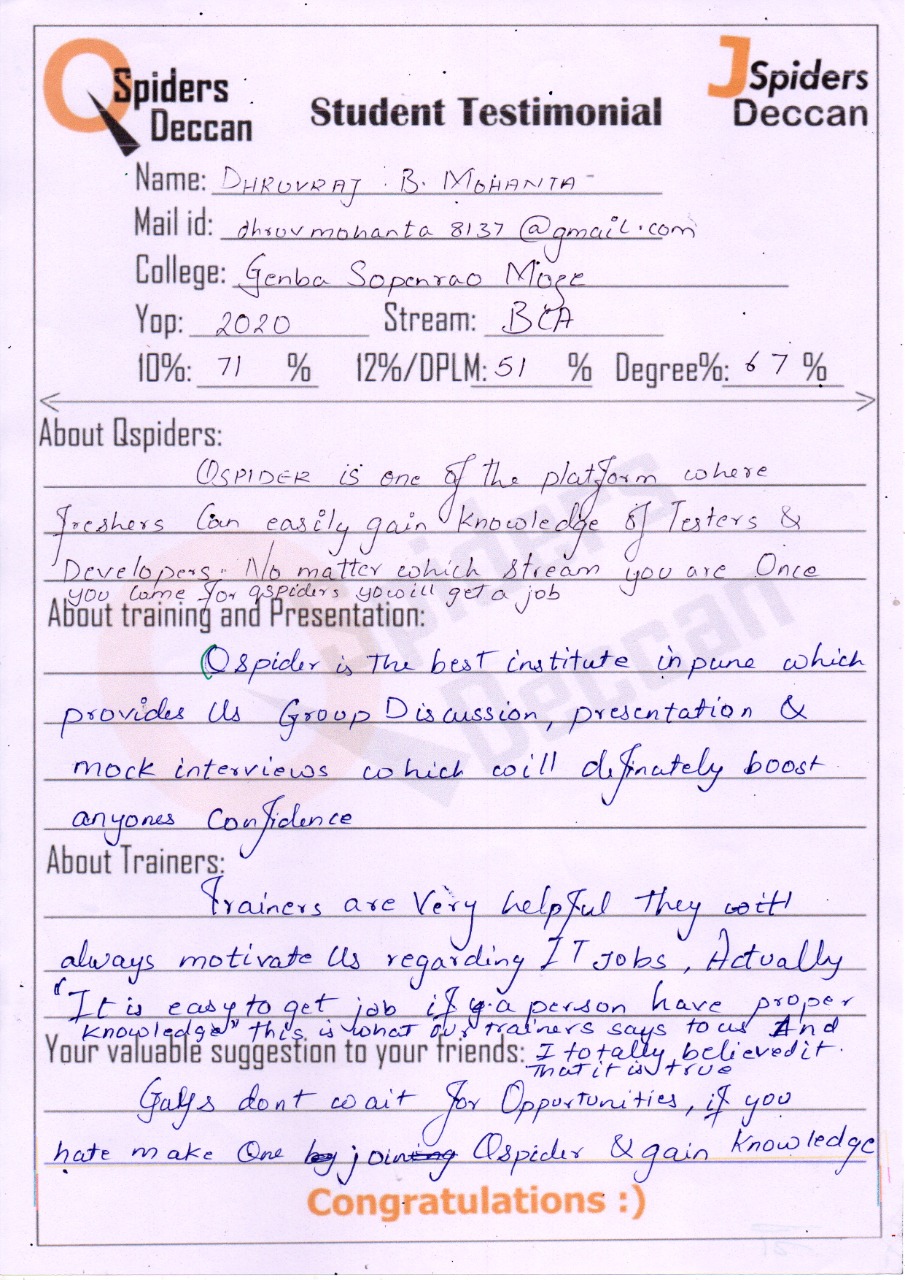 QSpiders Deccan
Student Testimonial
JSpiders Deccan
Name: DHRUVRAJ . B. MOHANTA
Mail id: dhruvmohanta 8137 @gmail.com
College: Genba Sopanrao Moze
Yop: 2020 Stream: BCA
10%: 71 % 12%/DPLM: 51 % Degree%: 67 %
About Qspiders:
QSPIDER is one of the platform where
freshers Can easily gain Knowledge of Testers &
Developers. No matter which stream you are Once
you come for qspiders you will get a job
About training and Presentation:
Qspider is the best institute in pune which
provides Us Group Discussion, presentation &
mock interviews which will definately boost
anyones Confidence
About Trainers:
Trainers are Very helpful they will
always motivate Us regarding IT Jobs, Actually
"It is easy to get job if a person have proper
Knowledge" this is what our trainers says to us And
Your valuable suggestion to your friends: I totally believed it.
that it is true
Guys dont wait for Opportunities, if you
hate make One join Qspider & gain Knowledge
Congratulations :)